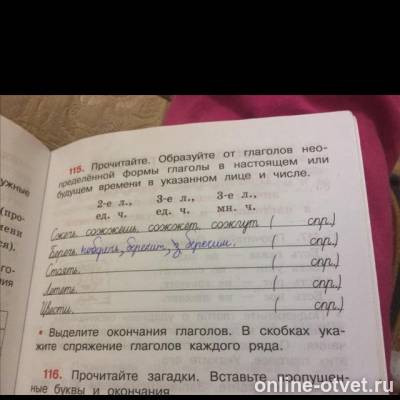 ужные
(про-
емени
ся).
го-
115. Прочитайте. Образуйте от глаголов нео-
пределённой формы глаголы в настоящем или
будущем времени в указанном лице и числе.
2-е л., 3-е л., 3-е л.,
ед. ч. ед. ч. мн. ч.
Сжечь сожжёшь, сожжёт, сожгут ( спр.)
Беречь ( спр.)
Стоять ( спр.)
Лететь ( спр.)
Цвести ( спр.)
• Выделите окончания глаголов. В скобках ука-
жите спряжение глаголов каждого ряда.
116. Прочитайте загадки. Вставьте пропущен-
ные буквы и окончания
online-otvet.ru